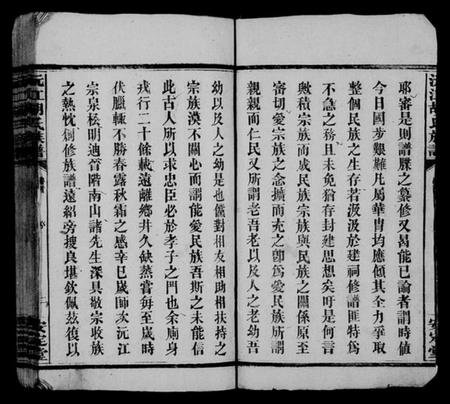 耶審是則譜牒之纂修又曷能已論者謂時值
今日國步艱難凡屬華胄均應傾其全力爭取
整個民族之生存若汲汲於建祠修譜匪特為
不急之務且未免猶存封建思想矣吁是何言
歟積宗族而成民族宗族與民族之關係原至
審切愛宗族之念擴而充之即為愛民族所謂
親親而仁民又所謂老吾老以及人之老幼吾
幼以及人之幼是也僅對相友相助相扶持之
宗族漠不關心而謂能愛民族吾斯之未能信
此古人所以求忠臣必於孝子之門也余廁身
戎行二十餘載遠離鄉井久缺烝嘗每至歲時
伏臘輒不勝春露秋霜之感辛巳歲師次沅江
宗泉松明迪晉階南山諸先生深具敬宗收族
之熱忱創修族譜遠紹旁搜良堪欽佩茲復以
沅江胡氏族譜
安定堂